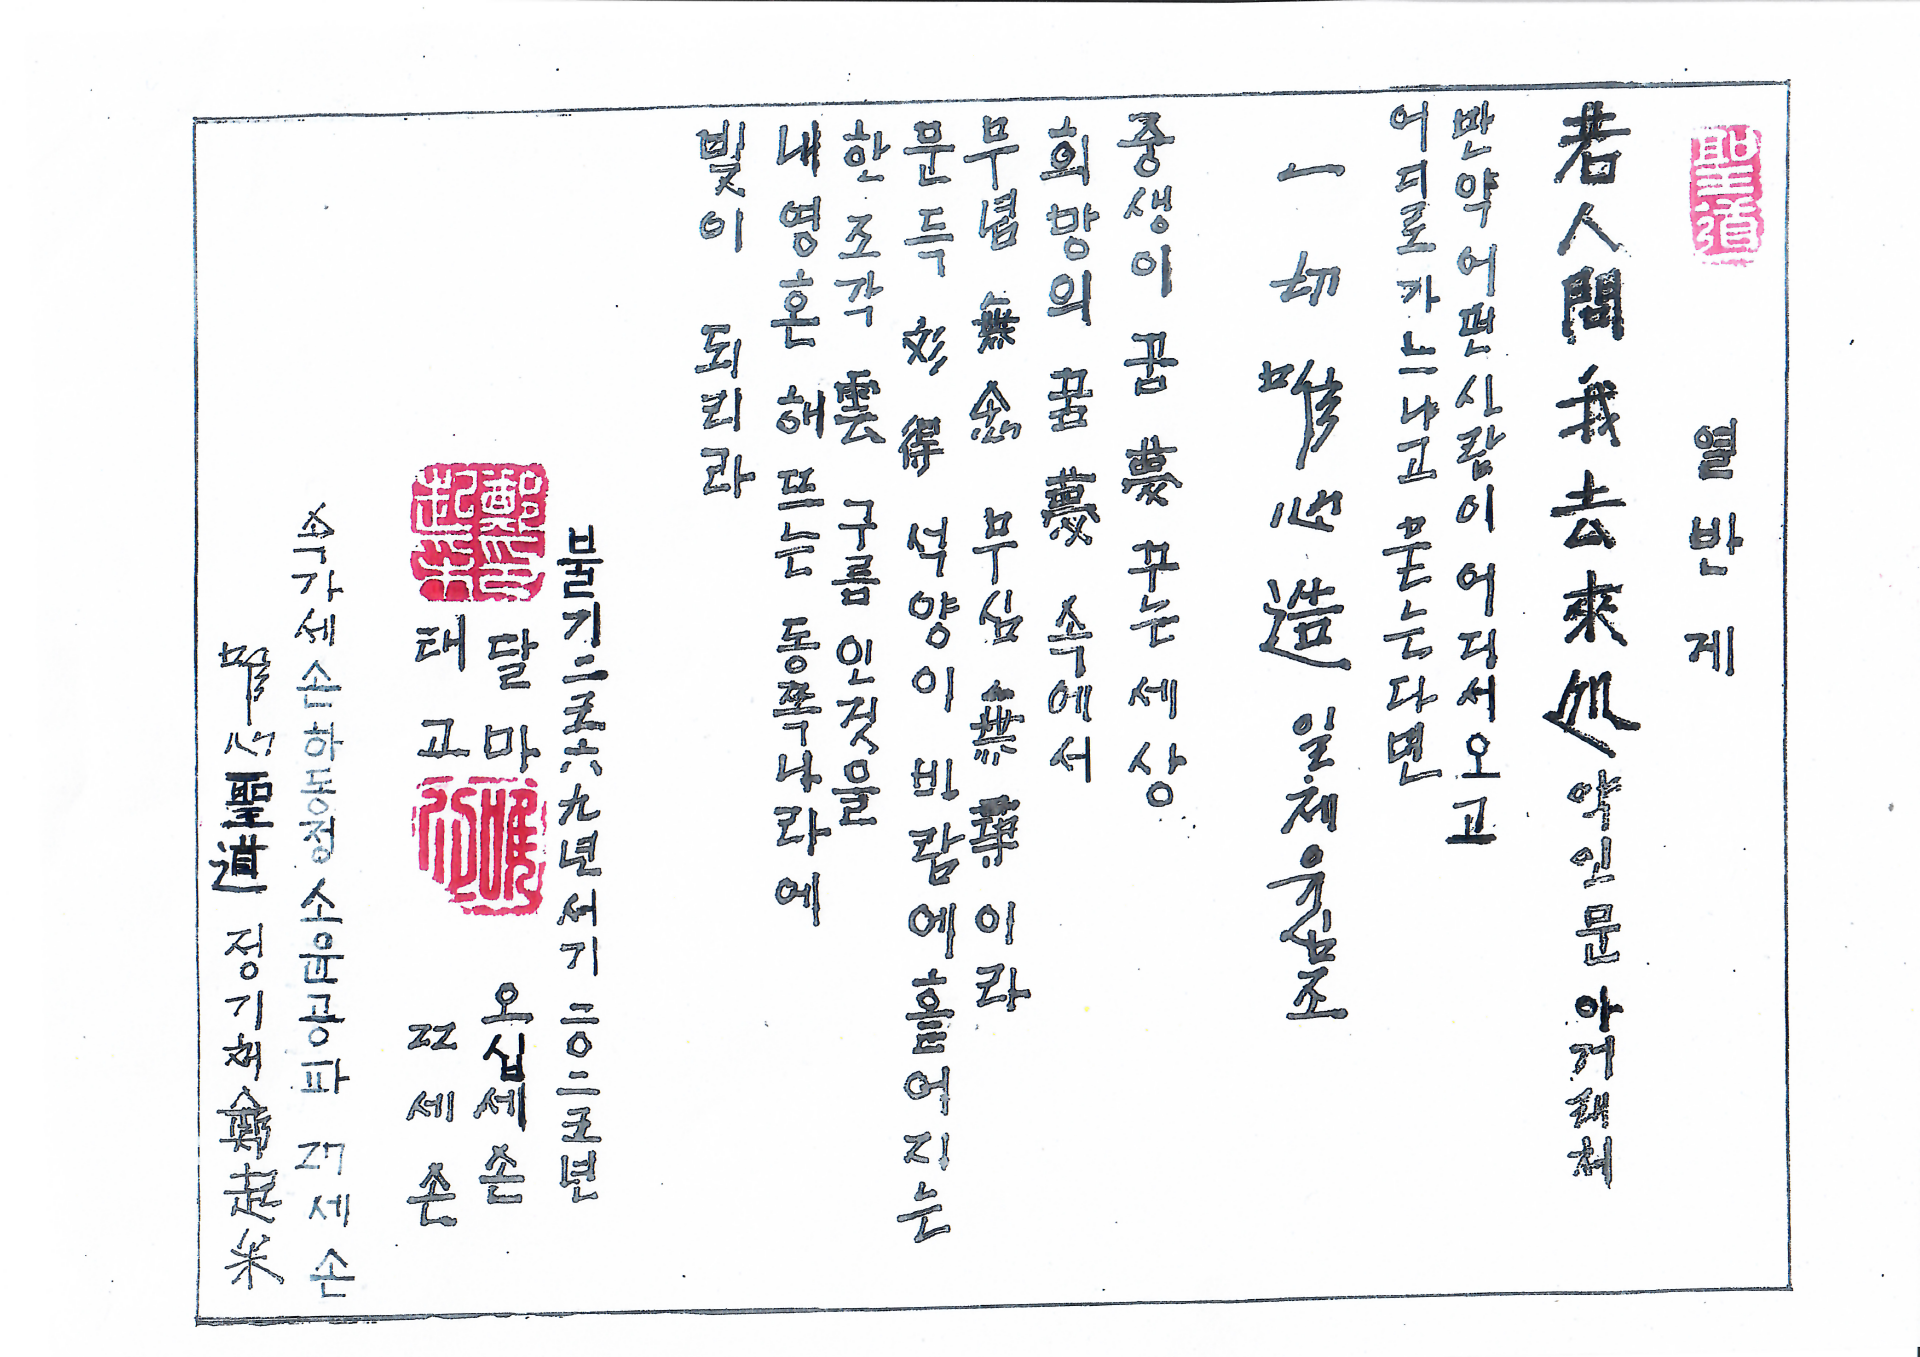 聖道
열반게
若人問我去來処 약인문아거래처
만약 어떤 사람이 어디서 오고
어디로 가느냐고 묻는다면
一切唯心造 일체유심조
중생이 꿈 夢 꾸는 세상
희망의 꿈 夢 속에서
무념 無念 무심 無
문득 得 석양이 바람에 흩어지는
한 조각 雲 구름 인것을
내 영혼 해 뜨는 동쪽나라에
빛이 되리라
불기二五六九년 서기二〇二五년
鄭印起采
달마 오십세손
태고 22세손
唯心
속가세손하동정소윤공파 27세손
唯心聖道 정기채 鄭起采